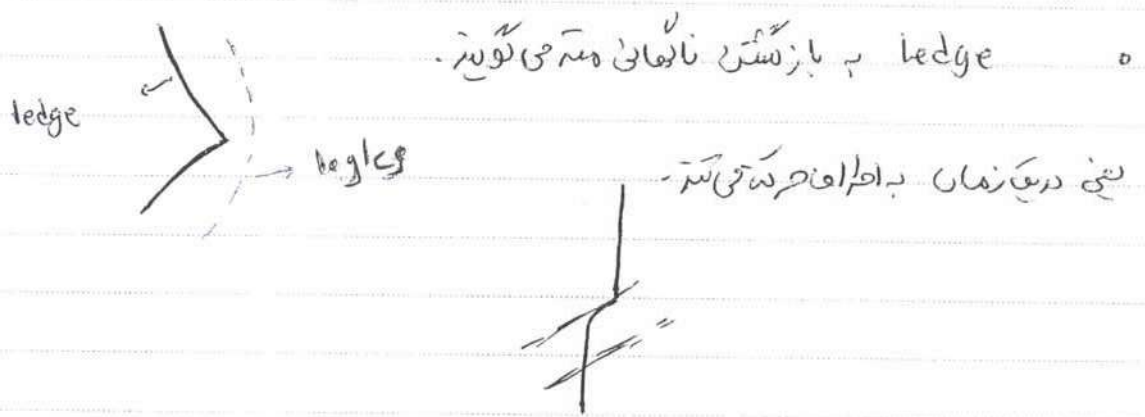 ledge به بازگشتن ناگهانی مته می گویند.
ledge
یعنی در یک زمان به اطراف حرکت می کند.